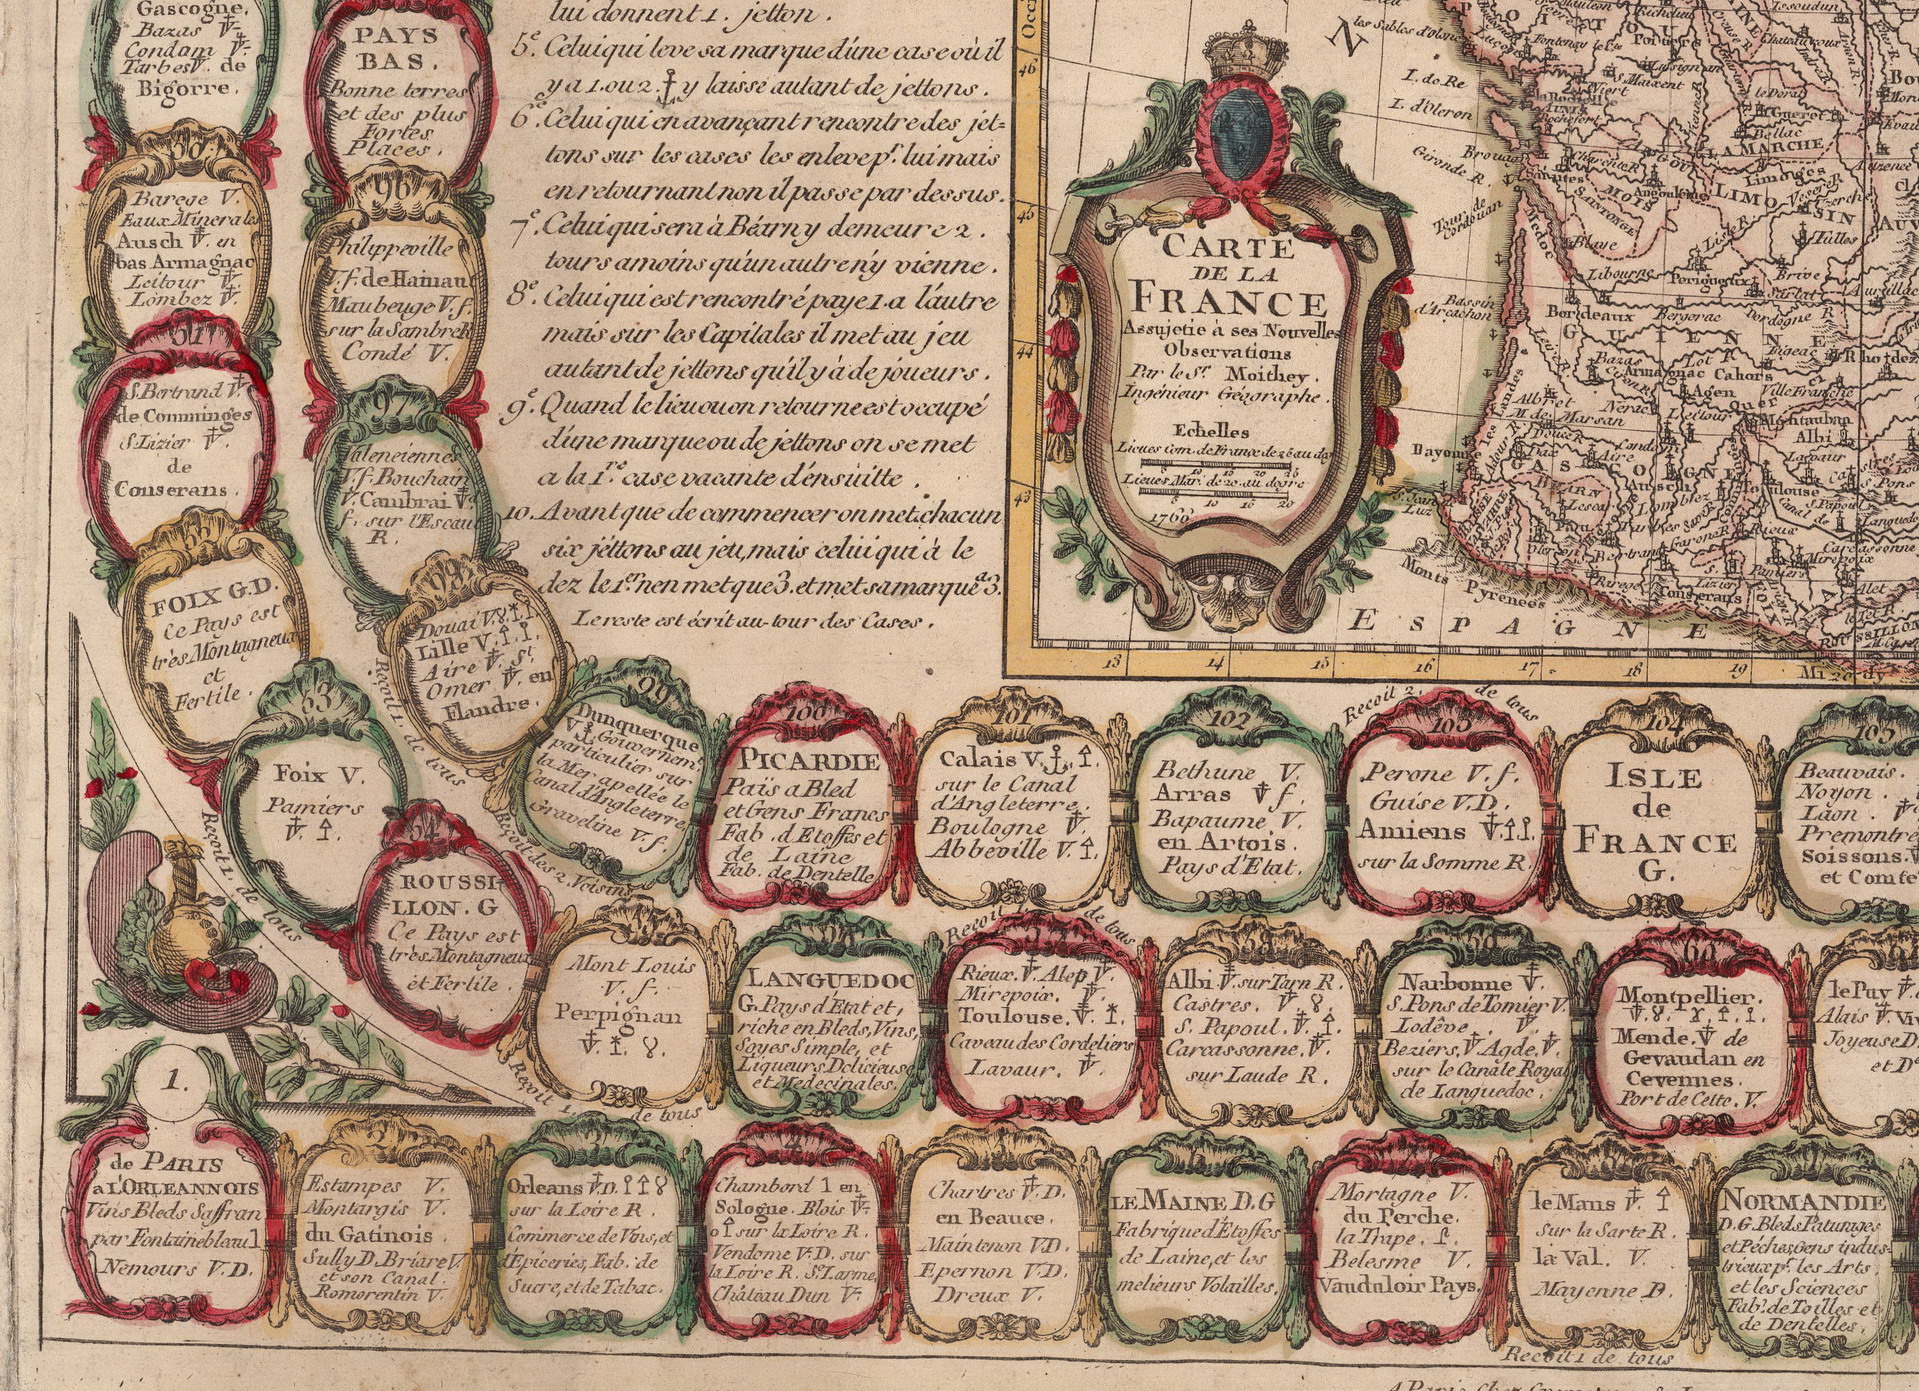 Gascogne.
Bazas V.
Condom V.
Tarbes V. de
Bigorre.
Barege V.
Eaux Minerales
Ausch V. en
bas Armagnac
Leitour V.
Lombez V.
51
S. Bertrand V.
de Comminges
S. Lizier V.
de
Conserans.
FOIX G.D.
Ce Pays est
très Montagneux
et
Fertile.
63
Foix V.
Pamiers
V.
Reçoit 1. de tous
54
ROUSSI-
LLON. G
Ce Pays est
très Montagneux
et Fertile.
PAYS
BAS.
Bonne terres
et des plus
Fortes
Places.
96
Philippeville
V. f. de Hainau
Maubeuge V. f.
sur la Sambre R
Condé V.
97
Valenciennes
V. f. Bouchain
V. Cambrai V.
f. sur l'Escau
R.
98
Douai V.
Lille V.
Aire V. St.
Omer V. en
Flandre.
Reçoit 1. de tous
lui donnent 1. jetton.
5e. Celui qui leve sa marque d'une case où il
y a 1. ou 2. y laisse autant de jettons.
6e. Celui qui en avançant rencontre des jet=
tons sur les cases les enleve pr. lui mais
en retournant non il passe par dessus.
7e. Celui qui sera à Béarn y demeure 2.
tours amoins qu'un autre n'y vienne.
8e. Celui qui est rencontré paye 1. a l'autre
mais sur les Capitales il met au jeu
autant de jettons qu'il y à de joueurs.
9e. Quand le lieu ou on retourne est occupé
d'une marque ou de jettons on se met
a la 1re. case vacante d'ensuitte.
10. Avant que de commencer on met chacun
six jettons au jeu, mais celui qui à le
dez le 1er. n'en met que 3. et met sa marque à 3.
Le reste est écrit au-tour des Cases.
CARTE
DE LA
FRANCE
Assujetie à ses Nouvelles
Observations
Par le Sr. Moithey.
Ingénieur Géographe.
Echelles
Lieues Com. de France de 25 au de
Lieues Mar. de 20. au degre
1760
46
45
44
43
13
14
15
16
17
18
19
Midy
N
les Sables d'Olone
I. de Re
I. d'Oleron
Gironde R.
Brouage
Tour de
Cordouan
Medoc
Bassin
d'Arcachon
Bayonne
S. Jean
Luz
Monts Pyrenées
ESPAGNE
Issoudun
Richelieu
Poitiers
Fontenay
S. Maixent
Lusignan
Niort
Gueret
Bellac
LA MARCHE
Limoges
LIMOSIN
Angoulême
Saintes
Blaye
Tulles
Libourne
Perigueux
Brive
Sarlat
Bordeaux
Bergerac
Dordogne R
GUIENNE
Bazas
Cahors
Agen
Albret
Nerac
Lectour
Villefranche
Montauban
Albi
GASCOGNE
Ausch
Toulouse
BEARN
Lescar
Tarbes
Rieux
Carcassonne
Mirepoix
Pamiers
Conserans
Alet
ROUSSILLON
99
Dunquerque
V. Gouvernemt.
particulier sur
la Mer apellée le
Canal d'Angleterre
Graveline V. f.
Reçoit des 2 Voisins
100
PICARDIE
Païs a Bled
et Gens Francs
Fab. d'Etoffes et
de Laine
Fab. de Dentelle
101
Calais V.
sur le Canal
d'Angleterre.
Boulogne V.
Abbéville V.
102
Bethune V.
Arras V f.
Bapaume V.
en Artois.
Pays d'Etat.
Recoit 2. de tous
103
Perone V. f.
Guise V.D.
Amiens V.
sur la Somme R.
104
ISLE
de
FRANCE
G.
105
Beauvais.
Noyon.
Laon. V
Premontre
Soissons. V
et Comté
Mont Louis
V. f.
Perpignan
V.
Reçoit 1. de tous
LANGUEDOC
G. Pays d'Etat et,
riche en Bleds, Vins,
Soyes Simple, et
Liqueurs Delicieuse
et Medecinales.
Recoit 1. de tous
57
Rieux. V. Alep V.
Mirepoix. V.
Toulouse. V.
Caveau des Cordeliers
Lavaur. V.
58
Albi V. sur Tarn R.
Castres. V
S. Papoul. V.
Carcassonne. V.
sur Laude R.
59
Narbonne V.
S. Pons de Tomier V.
Lodêve. V.
Beziers, V. Agde. V.
sur le Canale Royal
de Languedoc.
60
Montpellier.
V.
Mende. V de
Gevaudan en
Cevennes.
Port de Cette. V.
le Puy V.
Alais V. Viv
Joyeuse D.
et D
1.
de PARIS
a L'ORLEANNOIS
Vins Bleds Saffran
par Fontainebleau 1
Nemours V. D.
2
Estampes V.
Montargis V.
du Gatinois.
Sully D. Briare V.
et son Canal.
Romorentin V.
3
Orleans V.D.
sur la Loire R.
Commerce de Vins, et
d'Epiceries, Fab. de
Sucre, et de Tabac.
4
Chambord 1 en
Sologne. Blois V.
sur la Loire R.
Vendome V.D. sur
la Loire R. St. Larme,
Château Dun V.
5
Chartres V. D.
en Beauce.
Maintenon V.D.
Epernon V.D.
Dreux V.
6
LE MAINE D.G
Fabrique d'Etoffes
de Laine, et les
melieurs Volailles.
7
Mortagne V.
du Perche.
la Trape.
Belesme V.
Vauduloir Pays.
8
le Mans V.
sur la Sarte R.
la Val. V.
Mayenne D.
Recoit 1 de tous
9
NORMANDIE
D.G. Bleds Paturages
et Pêches, Gens indus-
trieux pr. les Arts
et les Sciences
Fabr. de Toilles et
de Dentelles.
A Paris chez